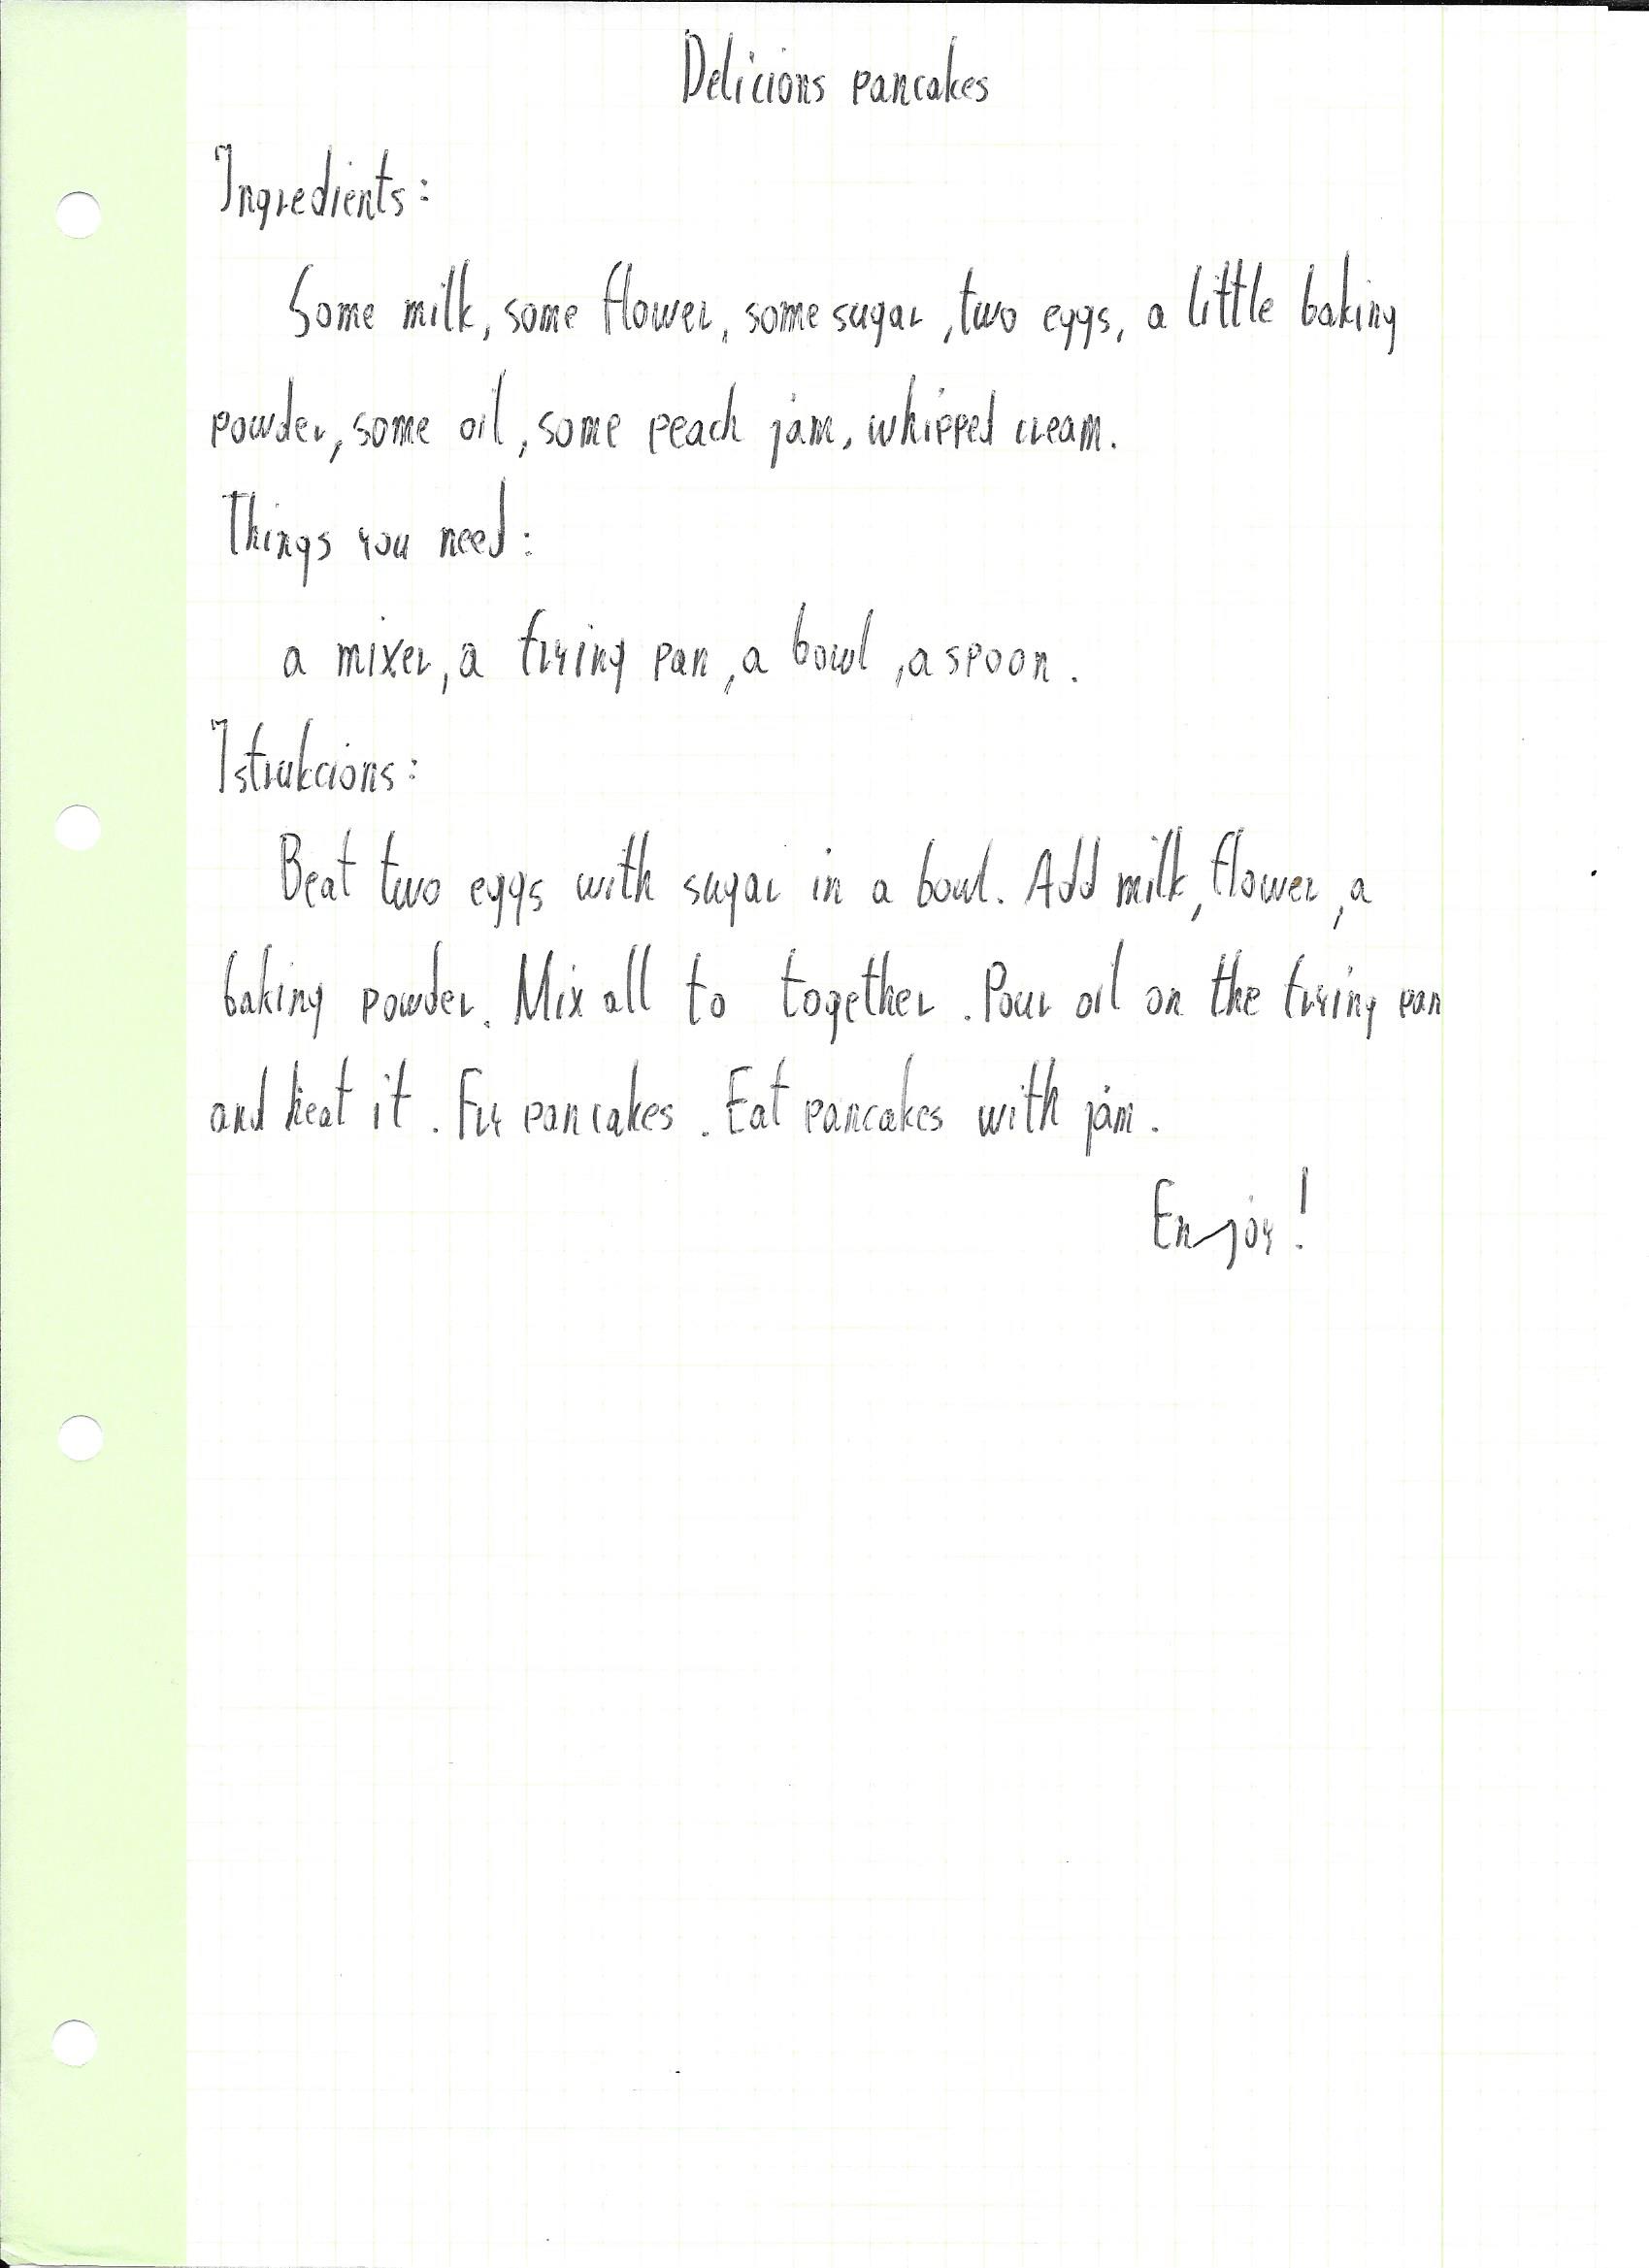 Delicions pancakes
Ingredients:
Some milk, some flower, some sugar, two eggs, a little baking
powder, some oil, some peach jam, whipped cream.
Things you need:
a mixer, a frying pan, a bowl, a spoon.
Istrukcions:
Beat two eggs with sugar in a bowl. Add milk, flower, a
baking powder. Mix all to together. Pour oil on the frying pan
and heat it. Fry pancakes. Eat pancakes with jam.
Enjoy!